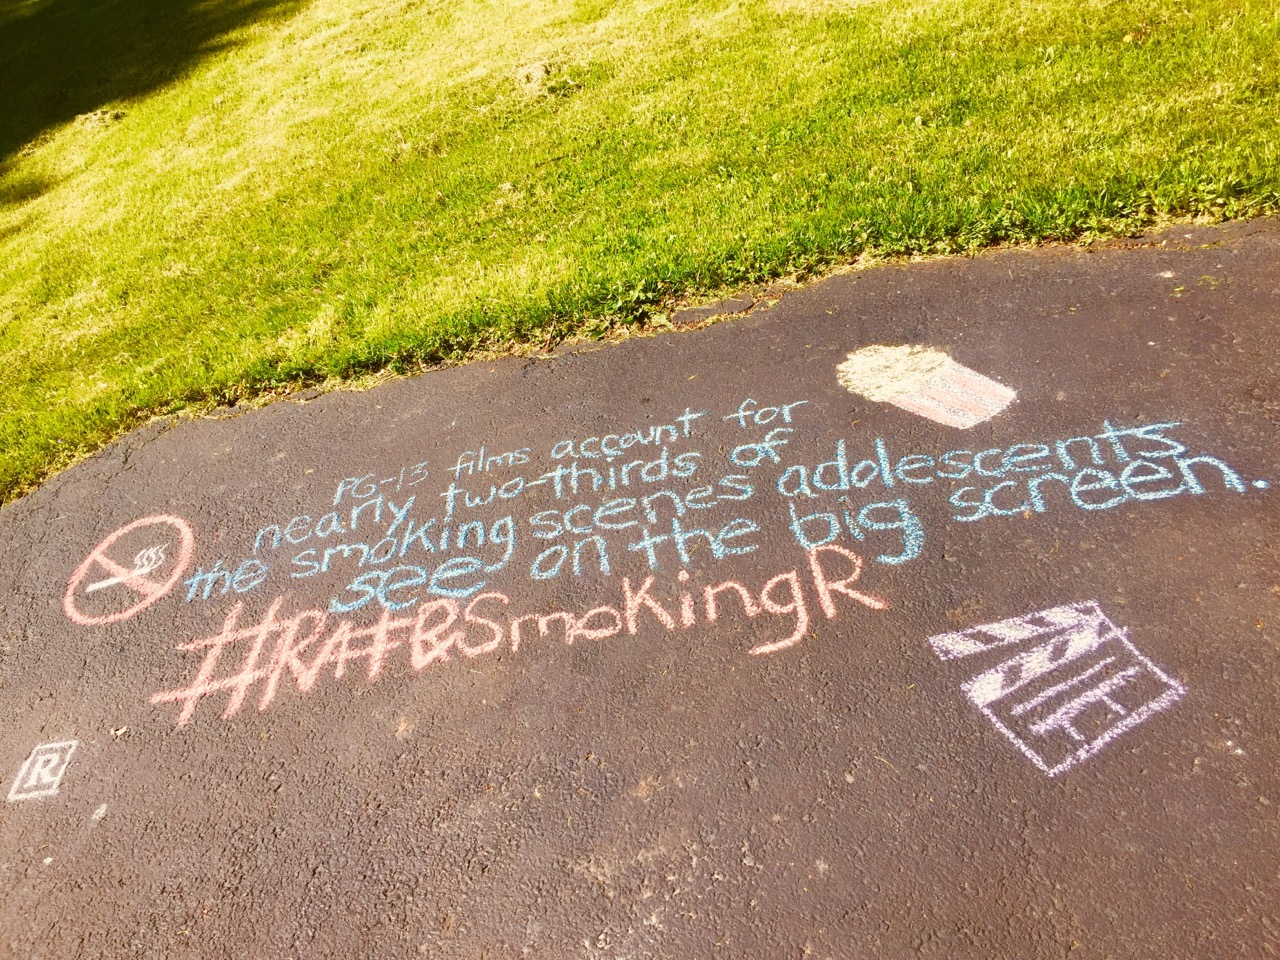 PG-13 films account for
nearly two-thirds of
the smoking scenes adolescents
see on the big screen.
#RATESmokingR
R